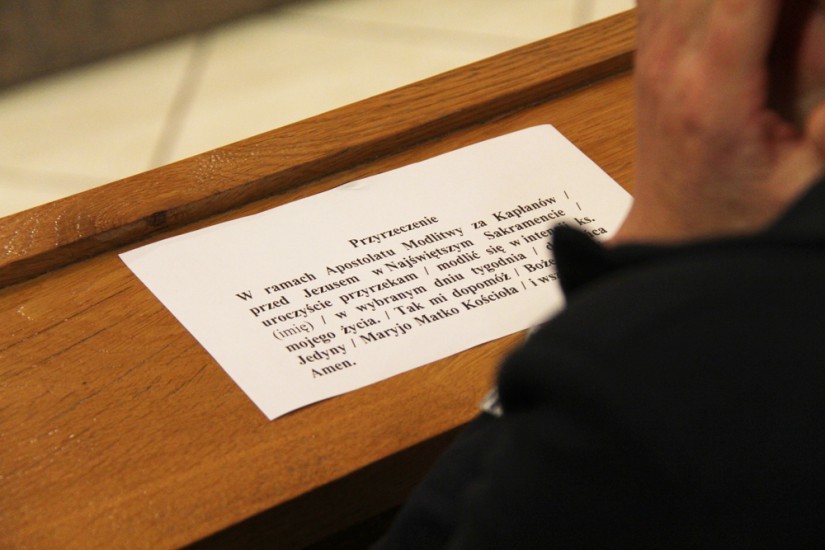 Przyrzeczenie
W ramach Apostolatu Modlitwy za Kapłanów /
przed Jezusem w Najświętszym Sakramencie /
uroczyście przyrzekam / modlić się w ks.
(imię) / w wybranym dniu tygodnia /
mojego życia. / Tak mi dopomóż /
Jedyny / Maryjo Matko Kościoła / i
Amen.